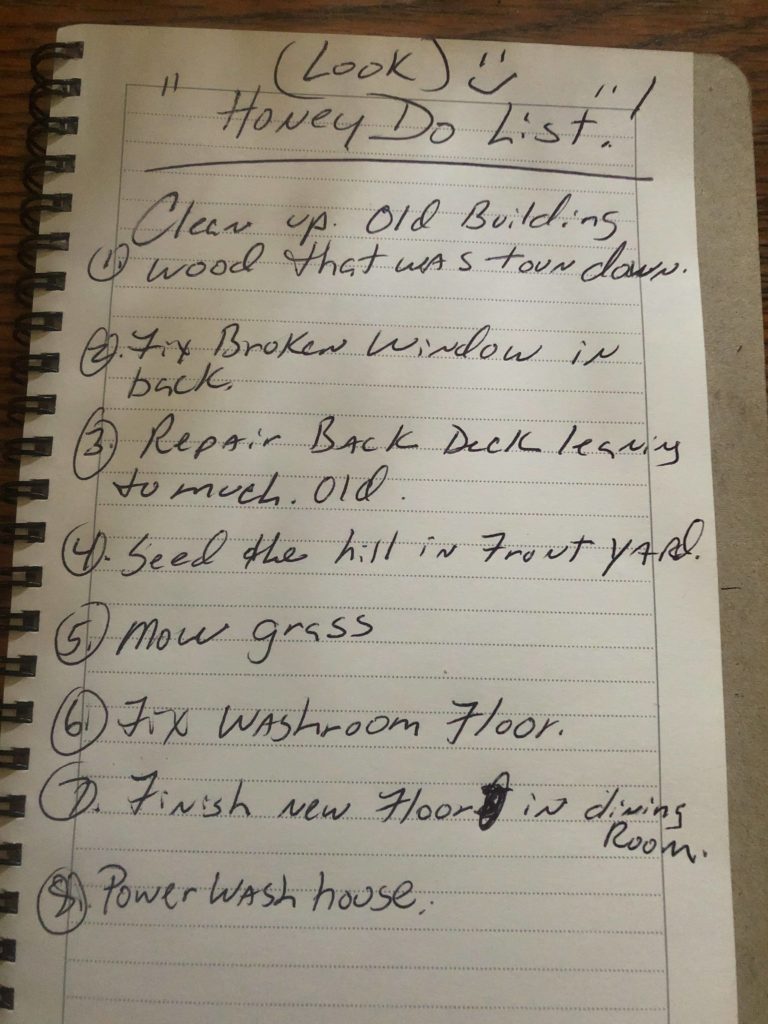 (Look)
"Honey Do List."!
Clean up. Old Building
1. wood that was toun down.
2. Fix Broken Window in
back.
3. Repair Back Deck leaning
to much. Old.
4. Seed the hill in Front yard.
5. mow grass
6. Fix Washroom Floor.
7. Finish new Floor in dining
Room.
8. Power Wash house.